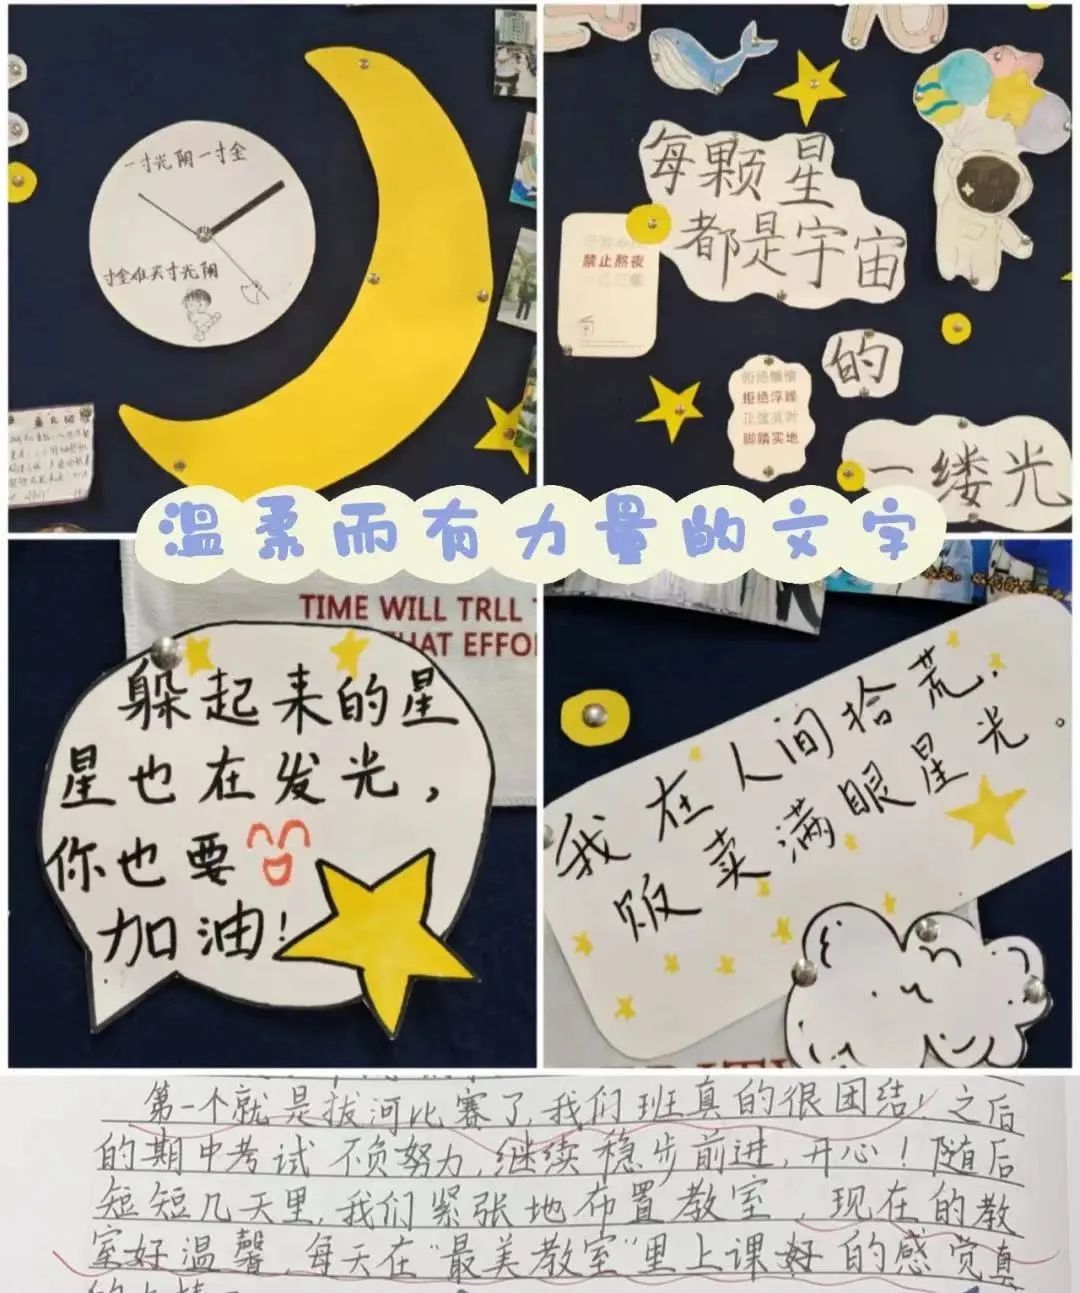 一寸光阴一寸金
寸金难买寸光阴
每颗星
都是宇宙
禁止熬夜
的
拒绝浮躁
脚踏实地
一缕光
温柔而有力量的文字
TIME WILL TRLL
HAT EFFO
躲起来的星
星也在发光，
你也要
加油！
我在人间拾荒，
贩卖满眼星光。
第一个就是拔河比赛了，我们班真的很团结！之后
的期中考试不负努力，继续稳步前进，开心！随后
短短几天里，我们紧张地布置教室，现在的教
室好温馨，每天在“最美教室”里上课好的感觉真